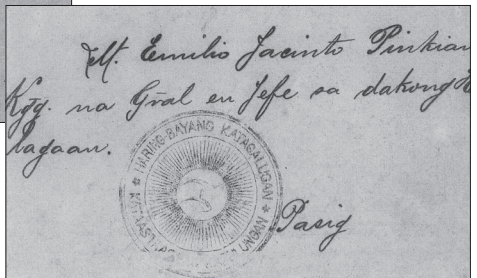 Mt. Emilio Jacinto Pinkian
Kgg. na Gral en Jefe sa dakong H
lagaan.
★ HARING-BAYANG KATAGALUGAN ★
Pasig